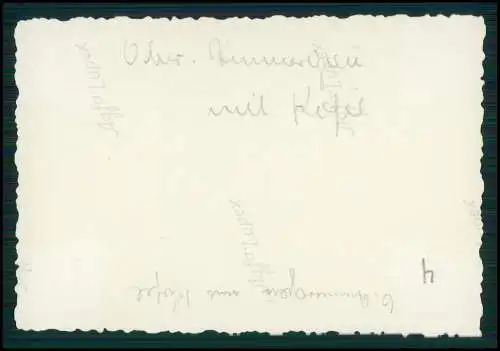 Ober. Ammergau
mit Kofel
Agfa Lupex
Agfa Lupex
Agfa Lupex
4
O. Ammergau mit Kofel